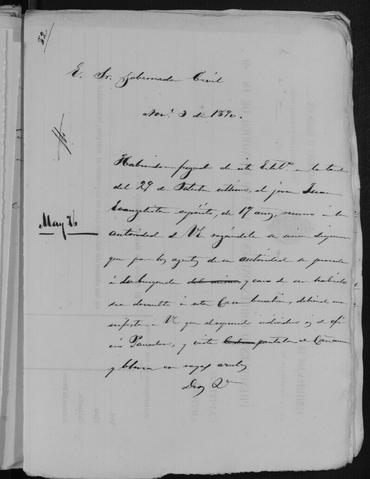 52
E. Sr. Gobernador Civil
Nov. 3 de 1890.
Habiendo fugado de este Estbl.º en la tarde
del 29 de Octubre último, el joven Juan
Evangelista expósito, de 17 años, acudo a la
autoridad de VE rogándole se sirva disponer
que por los agentes de su autoridad se proceda
á la busqueda y caso de ser habido
sea devuelto á este Casa, debiendo ma
nifestar a VE que el segundo individuo es de ofi
cio Panadero, y viste pantalon de
y blusa con rayas azules
Dios Vº